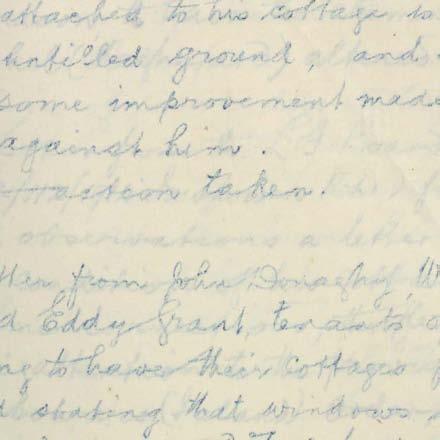 attached to his cottage is
untilled ground, and
some improvement made
against him.
action taken.
observations a letter
from John Donaghy,
Eddy Grant, tenants
to have their cottages
stating that windows